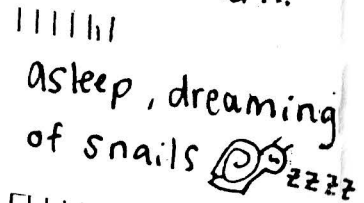 asleep, dreaming
of snails
zzzz